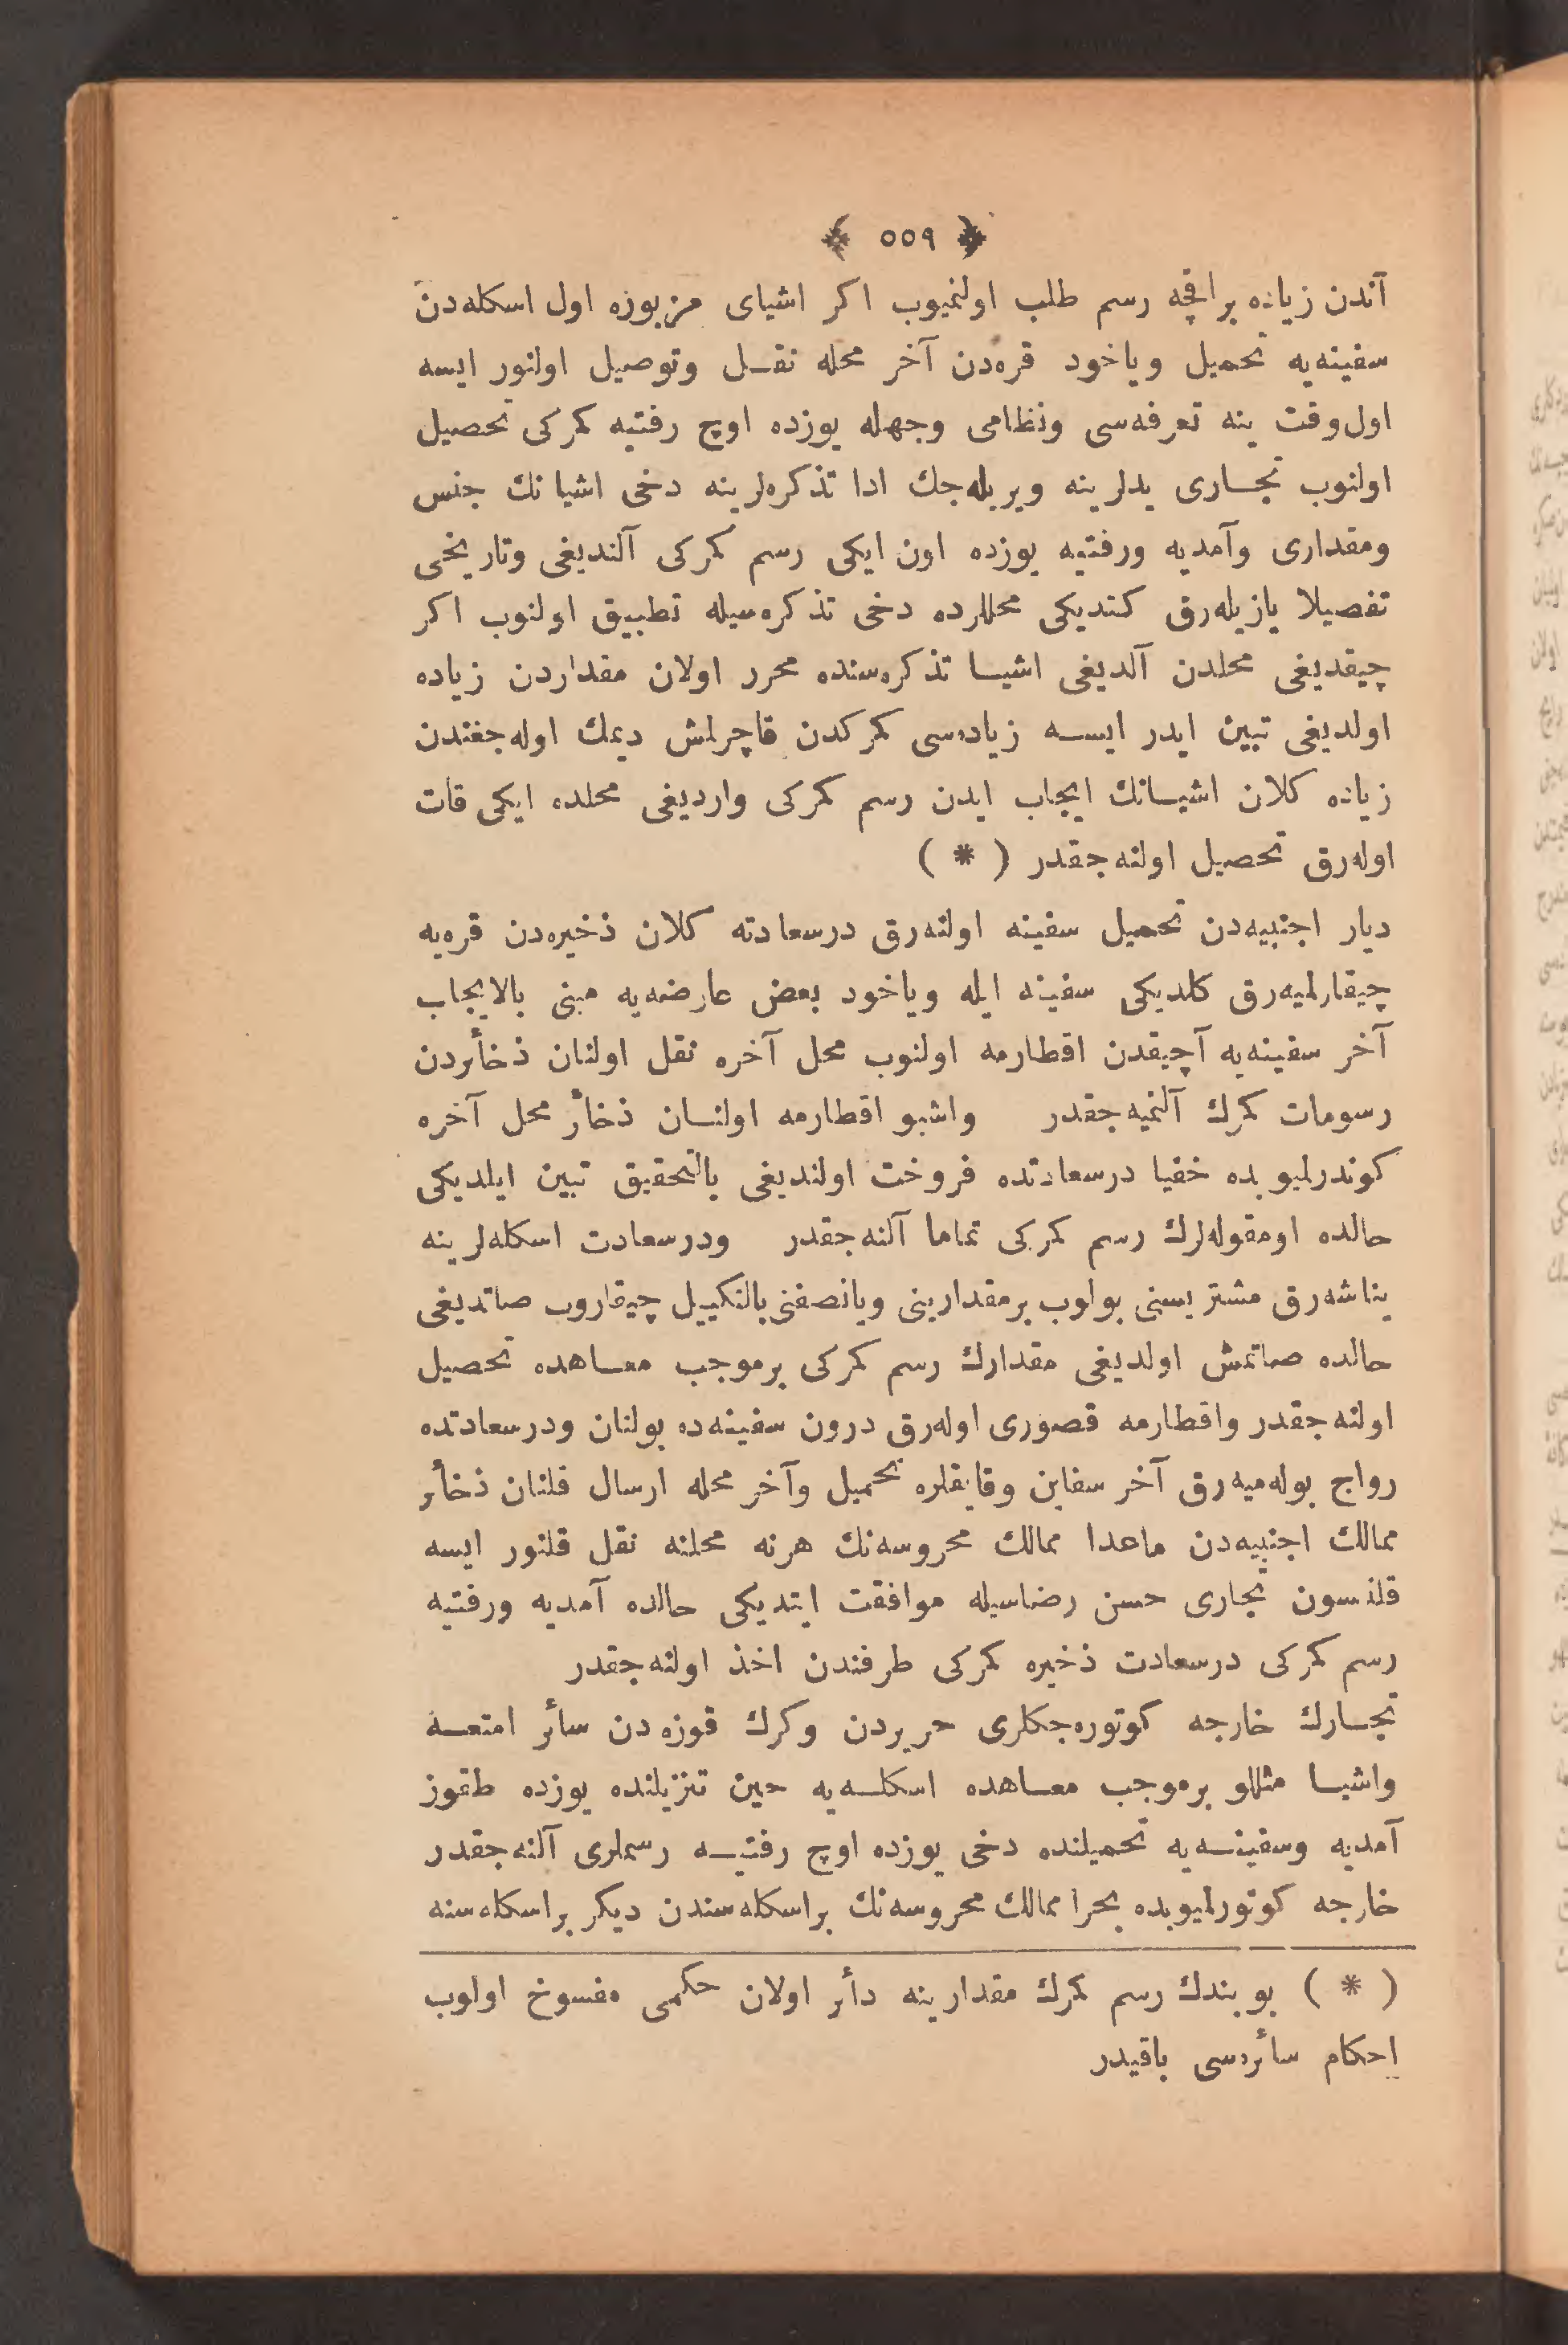 ﴿ ٥٥٩ ﴾
آندن زیاده بر اقچه رسم طلب اولنمیوب اکر اشیای مزبوره اول اسکله‌دن
سفینه‌یه تحمیل ویاخود قره‌دن آخر محله نقل وتوصیل اولنور ایسه
اول وقت ینه تعرفه‌سی ونظامی وجهله یوزده اوچ رفتیه کمرکی تحصیل
اولنوب تجاری یدلرینه ویریله‌جك ادا تذکره‌لرینه دخی اشیانك جنس
ومقداری وآمدیه ورفتیه یوزده اون ایکی رسم کمرکی آلندیغی وتاریخی
تفصیلا یازیله‌رق کتدیکی محللرده دخی تذکره‌سیله تطبیق اولنوب اکر
چیقدیغی محلدن آلدیغی اشیا تذکره‌سنده محرر اولان مقداردن زیاده
اولدیغی تبین ایدر ایسه زیاده‌سی کمرکدن قاچرلمش دیمك اوله‌جغندن
زیاده کلان اشیانك ایجاب ایدن رسم کمرکی واردیغی محلده ایکی قات
اوله‌رق تحصیل اولنه‌جقدر ( * )
دیار اجنبیه‌دن تحمیل سفینه اولنه‌رق درسعادته کلان ذخیره‌دن قره‌یه
چیقارلمیه‌رق کلدیکی سفینه ایله ویاخود بعض عارضه‌یه مبنی بالایجاب
آخر سفینه‌یه آچیقدن اقطارمه اولنوب محل آخره نقل اولنان ذخائردن
رسومات کمرك آلنمیه‌جقدر واشبو اقطارمه اولنان ذخائر محل آخره
کوندرلیوبده خفیا درسعادتده فروخت اولندیغی بالتحقیق تبین ایلدیکی
حالده اومقوله‌لرك رسم کمرکی تماما آلنه‌جقدر ودرسعادت اسکله‌لرینه
یناشه‌رق مشتریسنی بولوب برمقدارینی ویانصفنی بالتکییل چیقاروب صاتدیغی
حالده صاتمش اولدیغی مقدارك رسم کمرکی برموجب معاهده تحصیل
اولنه‌جقدر واقطارمه قصوری اوله‌رق درون سفینه‌ده بولنان ودرسعادتده
رواج بوله‌میه‌رق آخر سفاین وقایقلره تحمیل وآخر محله ارسال قلنان ذخائر
ممالك اجنبیه‌دن ماعدا ممالك محروسه‌نك هرنه محلنه نقل قلنور ایسه
قلنسون تجاری حسن رضاسیله موافقت ایتدیکی حالده آمدیه ورفتیه
رسم کمرکی درسعادت ذخیره کمرکی طرفندن اخذ اولنه‌جقدر
تجارك خارجه کوتوره‌جکلری حریردن وکرك قوزه‌دن سائر امتعه
واشیا مثللو برموجب معاهده اسکله‌یه حین تنزیلنده یوزده طقوز
آمدیه وسفینه‌یه تحمیلنده دخی یوزده اوچ رفتیه رسملری آلنه‌جقدر
خارجه کوتورلیوبده بحرا ممالك محروسه‌نك براسکله‌سندن دیکر براسکله‌سنه
( * ) بو بندك رسم کمرك مقدارینه دائر اولان حکمی مفسوخ اولوب
احکام سائره‌سی باقیدر